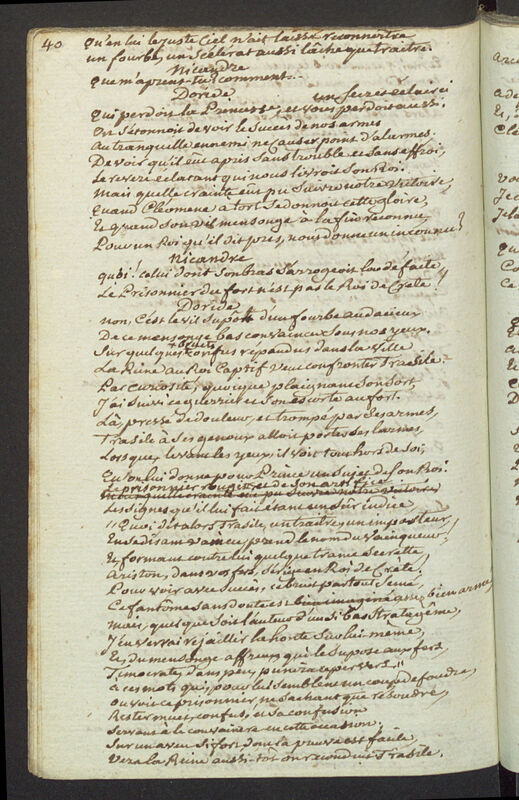 40
qu'en lui le juste Ciel n'ait laissé reconnertre
un fourbe, un scélérat aussi lâche que traitre.
Nicandre
que m'aprens-tu? comment..
Doride
un seize eclairci
qui perdoit la Princesse, et vous perdoit aussi.
On s'étonnoit de voir le succès de nos armes
Au tranquille ennemi ne causer point d'alarmes.
De voir qu'il eut apris sans trouble et sans effroi,
le revers éclatant qui nous livroit son Roi.
mais quelle crainte eut pu suivre notre victoire,
quand Cléomene à tort se donnoit cette gloire,
Et quand son vil mensonge à la fin reconnu,
Pour un Roi qu'il dit pris, nous donne un inconnu?
Nicandre
quoi! celui dont son bras s'arrogeoit la défaite,
Le Prisonnier du fort n'est pas le Roi de Crete!
Doride
non, C'est le vil suport d'un fourbe audacieux
De ce mensonge bas convaincu sous nos yeux.
Sur quelques bruits confus répandus dans la ville
La Reine au Roi Captif veut confronter Trasile.
Par curiosité, quoique plaignant son sort
J'ai suivi ce guerrier et son escorte au fort.
Là, pressé de douleur, et trompé par ses armes,
Trasile à ses genoux alloit porter ses larmes,
Lorsque, levant les yeux, il voit tout hors de soi,
Qu'on lui donne pour Prince un sujet de son Roi.
Le prisonnier rougit et de son artifice
Les signes qu'il lui fait étant un sûr indice,
"Quoi, dit alors Trasile, un traitre, un imposteur,
En se disant vaincu, prend le nom du vainqueur,
Et formant contre lui quelque trame secrette,
Ariston, dans vos fers, s'érige en Roi de Crete,
Pour voir avec succès, ce bruit partout semé,
Ce fantome sans doute est bien imaginé bien armé
mais, quel que soit l'auteur d'un si bas stratagême,
J'en verrai rejaillir la honte sur lui même,
Et, du mensonge affreux qui le supose au fort,
Timocrate, dans peu, punira ce pervers."
a ces mots qui, pour lui semblent un coup de foudre,
on voit ce prisonnier ne sachant que résoudre,
Rester muet, confus, et sa confusion
Servant à le convaincre en cette occasion.
Sur un aveu si fort dont la preuve est facile
vers la Reine aussi-tôt on reconduit Trasile.